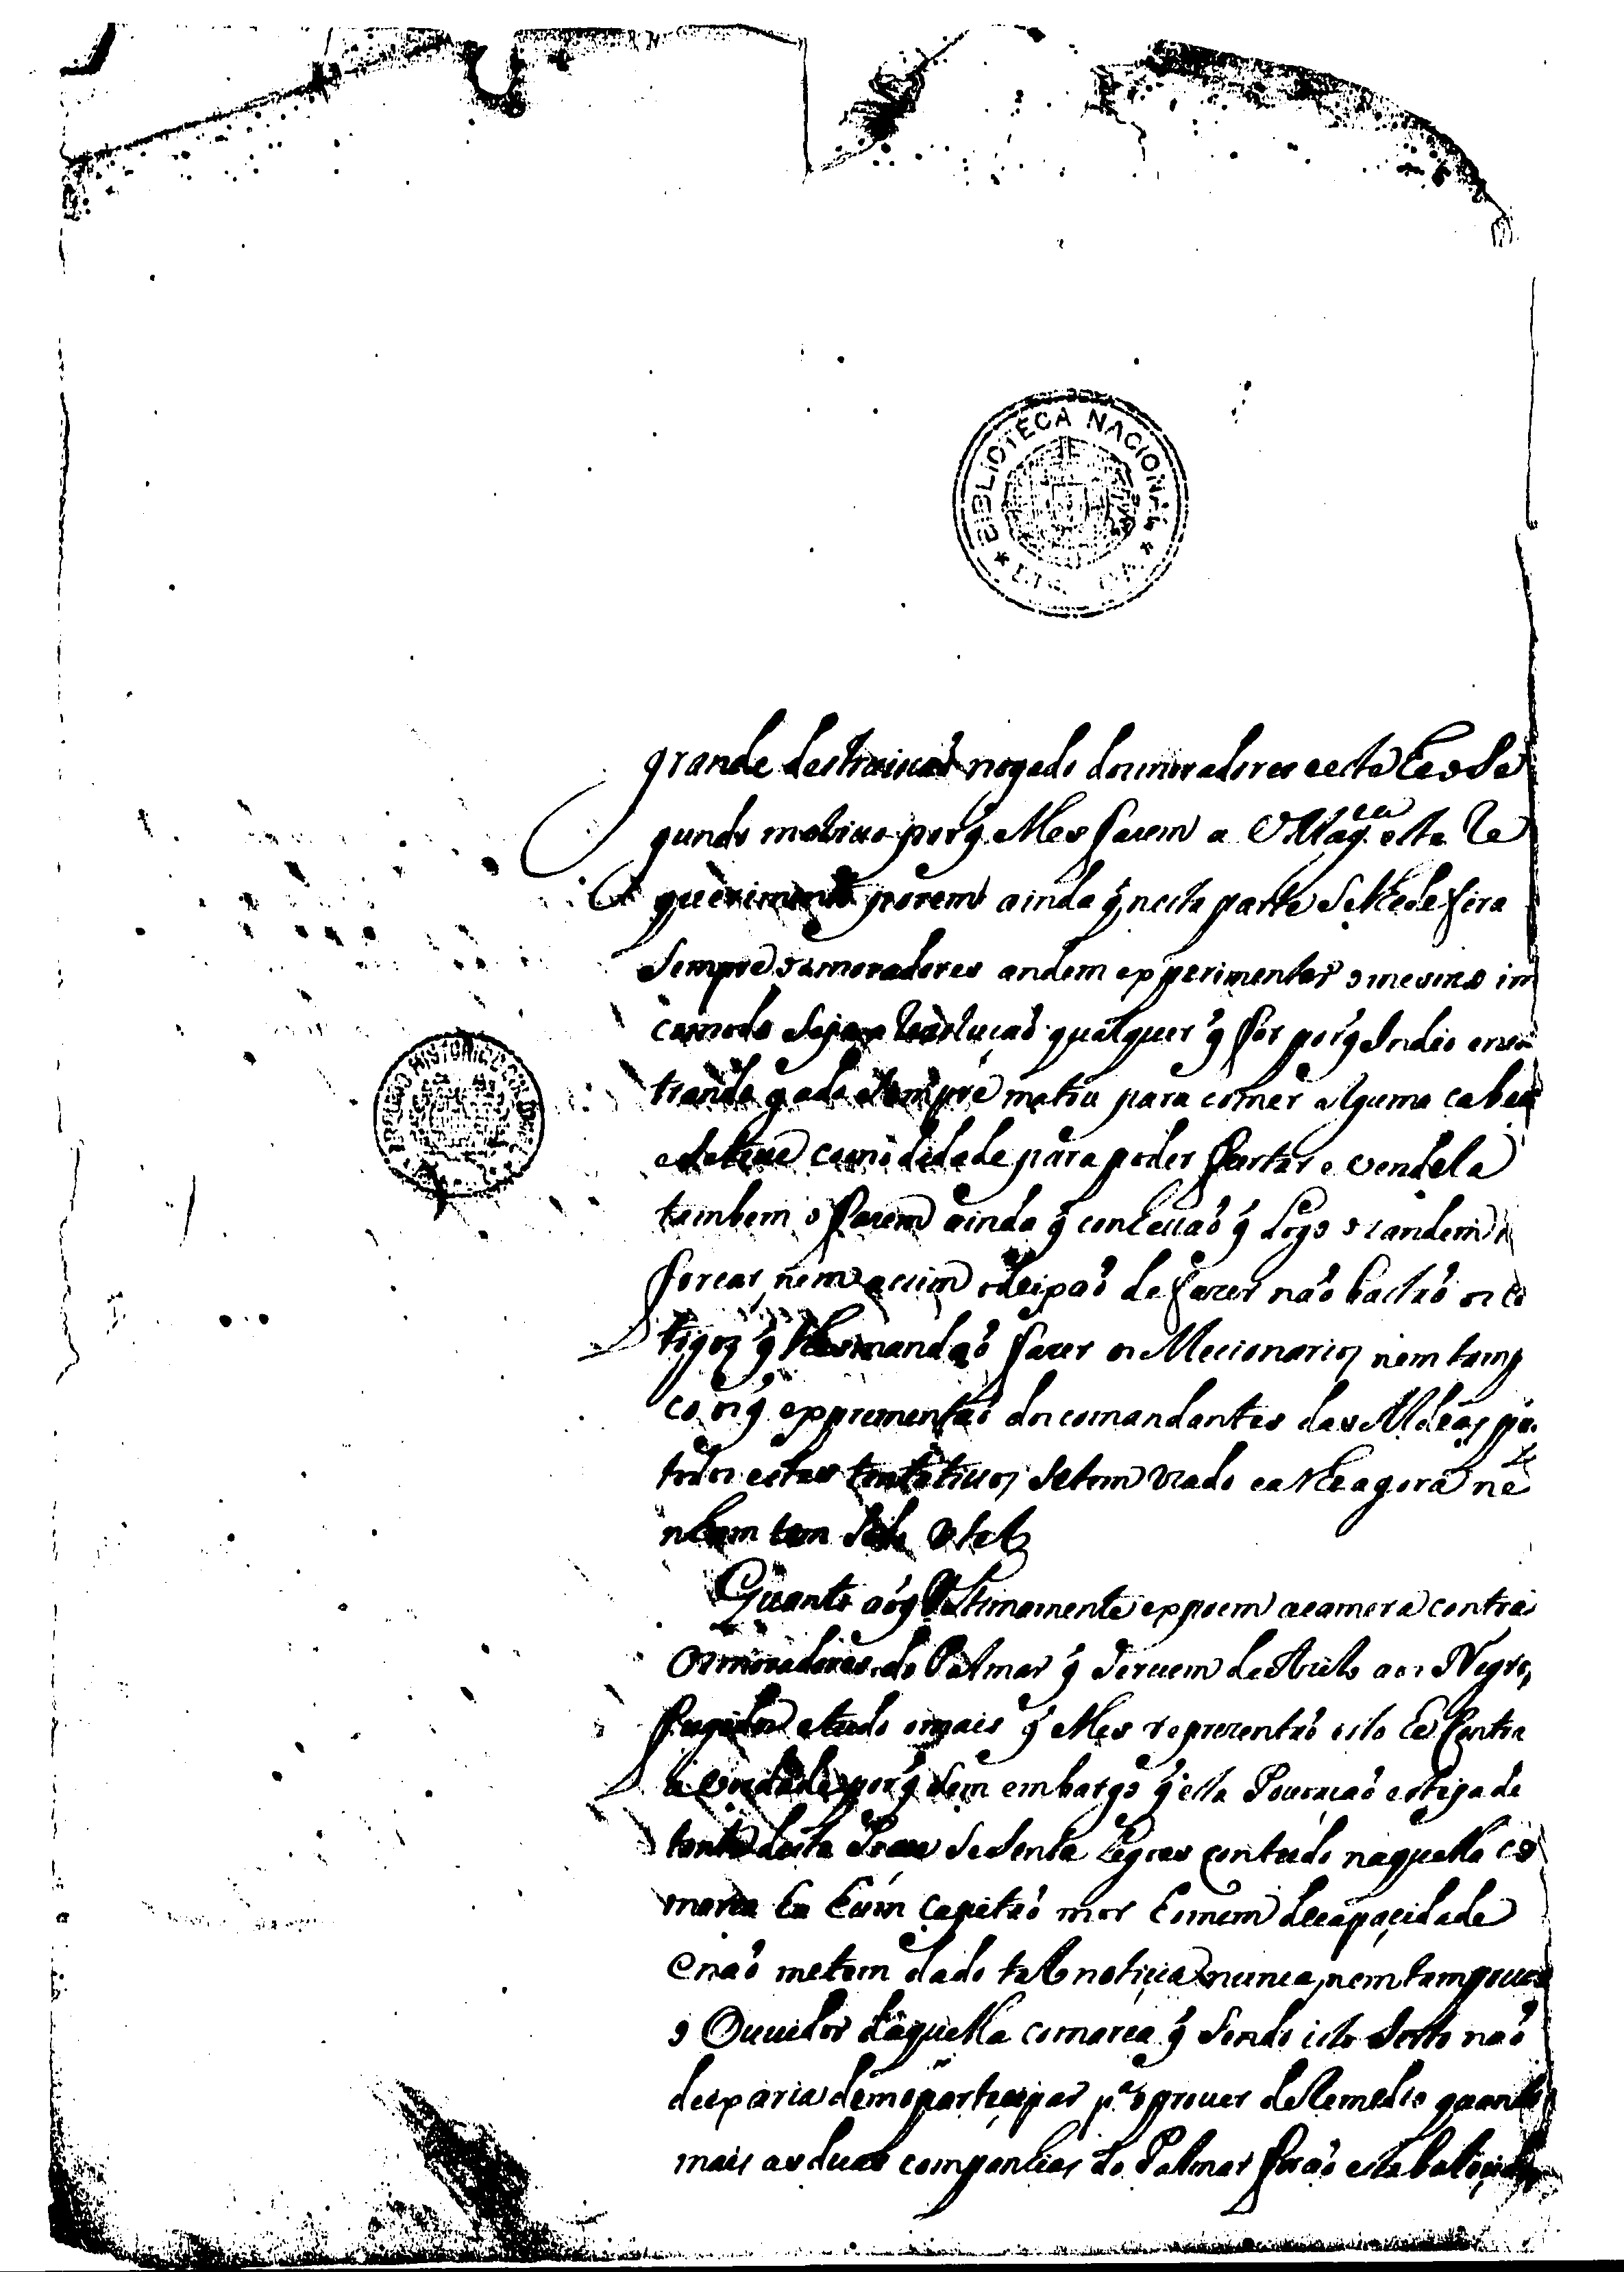 BIBLIOTECA NACIONAL
ARQUIVO HISTORICO COLONIAL
grande destruicaõ nogado dosmoradores eeste he o Se
gundo motiuo porq̃ elles fazem a V Mag.de este Re
querimento porem ainda q̃ nesta parte se lhe defira
Sempre os moradores andem experimentar o mesmo in
comodo Seja a Rezolucaõ qualquer q̃ for porq̃ Indio encon
trando gado sempre matou para comer alguma cabeca
e se teue comodidade para poder furtar e vendela
tambem o fazem ainda q̃ conhecaõ q̃ logo os andem
forcar, nem assim o deixaõ de fazer naõ bastaõ os cas
tigos q̃ lhes mandaõ fazer os Missionarios nem tampou
co os q̃ exprementaõ dos comandantes das Aldeas, por
todos estes tentatiuos se tem uzado e athe agora ne
nhum tem sido vtel
Quanto aoq̃ vltimamente expoem a camera contra
Os moradores do Palmar q̃ seruem de Azilo aos Negros
fugidos e tudo o mais q̃ elles reprezentaõ isto he contra
a verdade porq̃ sem embargo q̃ esta Pouoacaõ esteja de
tante desta Praca sesenta legoas contudo naquella co
marca ha hum capitaõ mor homem de capacidade
e naõ me tem dado tal noticia nunca, nem tam pouco
o Ouuidor daquella comarca q̃ sendo isto serto naõ
deixaria de mo partecipar p.a o prouer de Remedio quanto
mais as duas companhias do Palmar foraõ estabalecidas